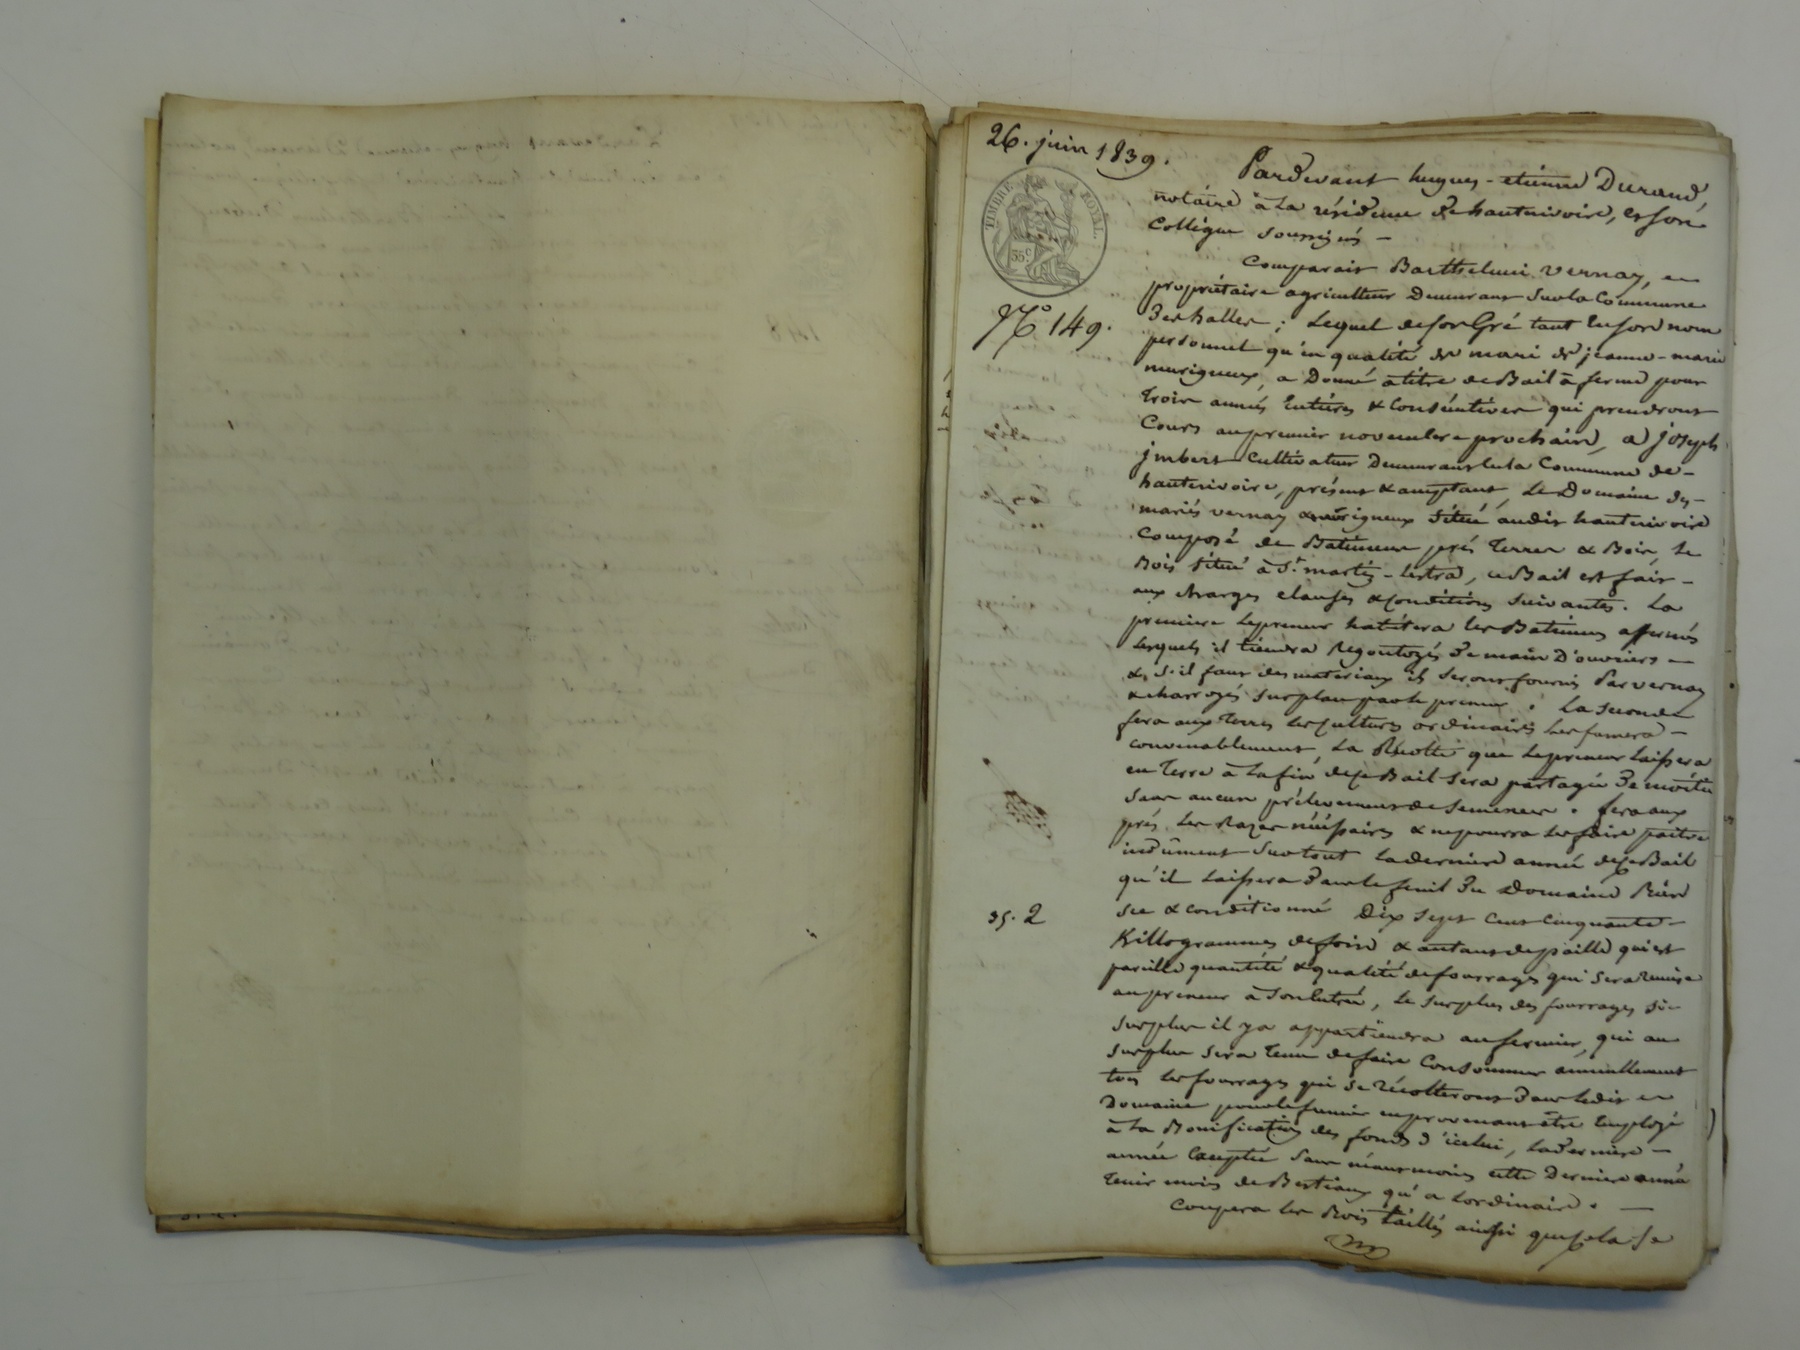 26. juin 1839.
TIMBRE ROYAL.
35 c.
N.º 149.
35. 2
Pardevant hugues-etienne Durand,
notaire à la résidence de hauterivoire, et son
Collègue soussignés —
Comparait Barthelemi Vernay,
propriétaire agriculteur Demeurant sur la Commune
des halles; Lequel de son Gré tant En son nom
personnel qu'en qualité de mari de jeanne-marie
murigneux, a Donné à titre de Bail à ferme pour
Trois années Entières & Consécutives qui prendront
Cours au premier novembre prochain, a joseph
jmbert Cultivateur Demeurant en la Commune de-
hauterivoire, présent & acceptant, Le Domaine des-
mariés vernay & murigneux situé audit hauterivoire
Composé de Batiment prés Terres & Bois, Le
Bois situé à St. martin-lestra, ce Bail est fait-
aux charges clauses & conditions suivantes. La
premiere Le preneur habitera les Batiments affermés
Lesquels il tiendra Regoutoyés de main D'ouvriers
& s'il faut des materiaux ils seront fournis Par vernay
& charroyés sur place par le preneur. La seconde
fera aux Terres les cultures ordinaires les fumera-
convenablement, La Récolte que Le preneur Laissera
en Terre à La fin de ce Bail sera partagée De moitié
sans aucun prélevement de semences. fera aux
prés Les Razes néssaires & ne pourra Les faire paitre
indûment surtout La derniere année de ce Bail
qu'il Laissera dans le fenil Du Domaine Bien
sec & conditionné Dix sept cent cinquante-
Killogrammes de foin & autant de paille qui est
pareille quantité & qualité de fourrages qui sera Remise
au preneur à son Entrée, Le surplus des fourrages si-
surplus il y a appartiendra au fermier, qui au
surplus sera Tenu de faire Consommer annuellement
tous Les fourrages qui se récolteront dans Ledit
Domaine pour le fumier en provenant être Employé
à La Bonification des fonds d'icelui, La derniere-
année Exceptée sans néanmoins cette Derniere année
Tenir moins de Bestiaux qu'a Lordinaire. —
Coupera les Bois taillis ainsi que cela se